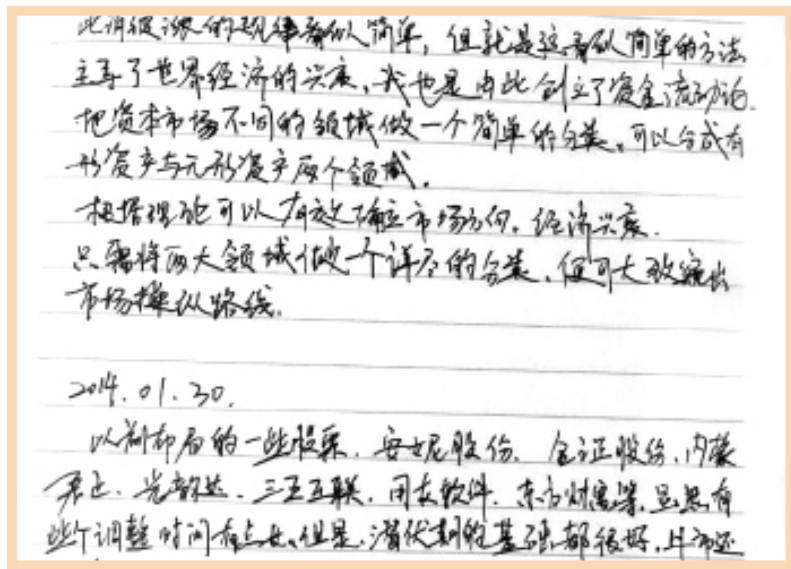 此消彼涨的规律看似简单，但就是这看似简单的方法
主导了世界经济的兴衰，我也是由此创立了资金流动论
把资本市场不同的领域做一个简单的分类，可以合成有
形资产与无形资产两个领域，
根据理论可以有效确立市场方向。经济兴衰.
只需将两大领域做一个详尽的分类，便可大致
市场操纵路线。
2014.01.30.
以前布局的一些股票，安妮股份、金证股份，内蒙
君正、光韵达、三五互联，用友软件，东方财富等，虽然有
些个调整时间有点长，但是，潜伏期的基础都很好，且